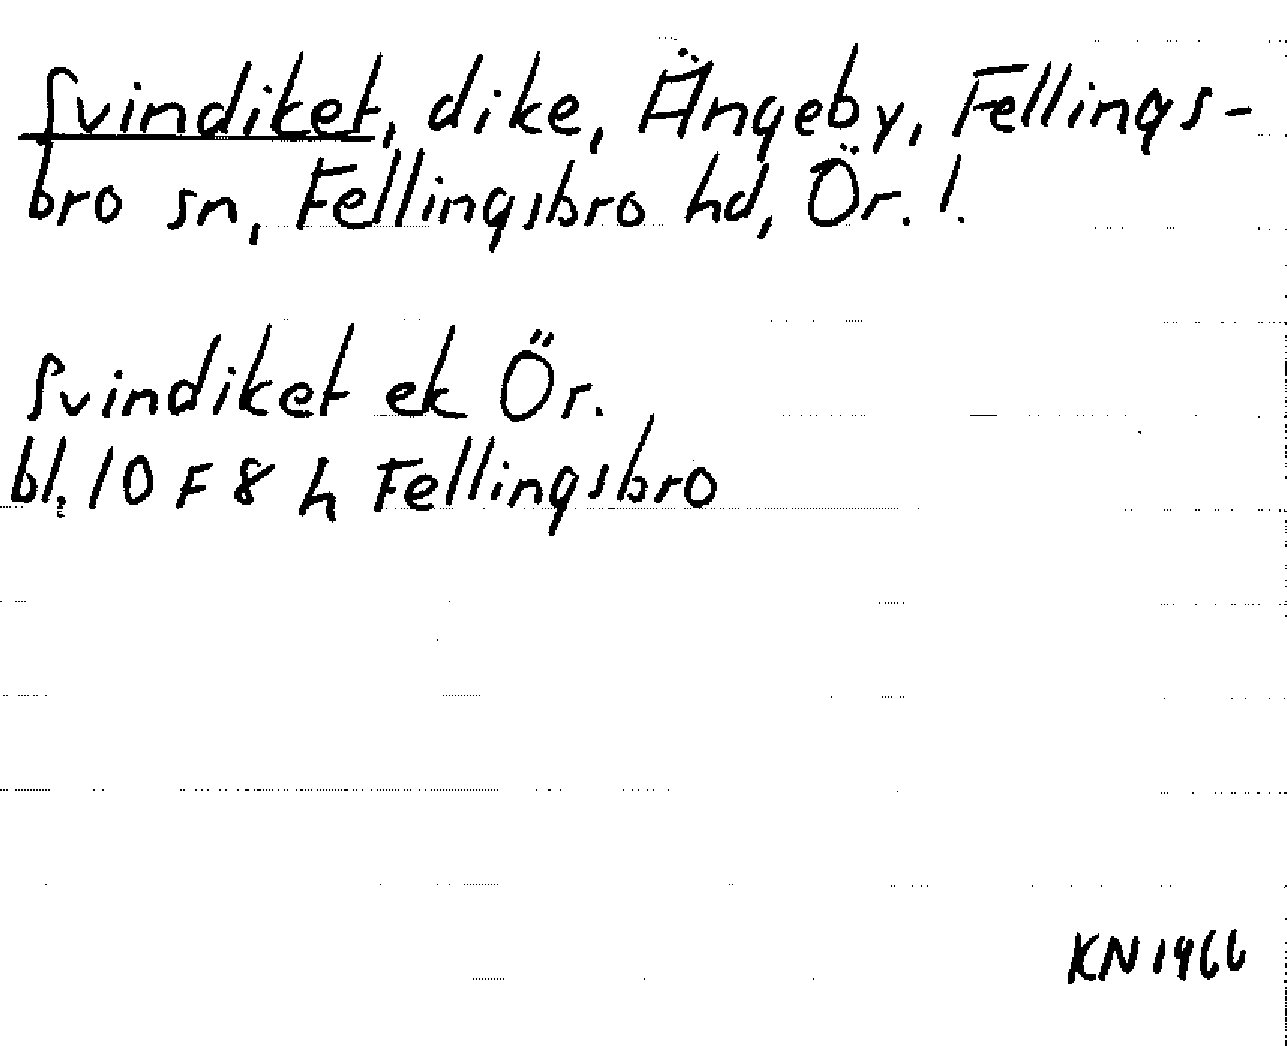 Svindiket, dike, Ängeby, Fellings-
bro sn, Fellingsbro hd, Ör. l.
Svindiket ek Ör.
bl. 10 F 8 h Fellingsbro
KN 1966